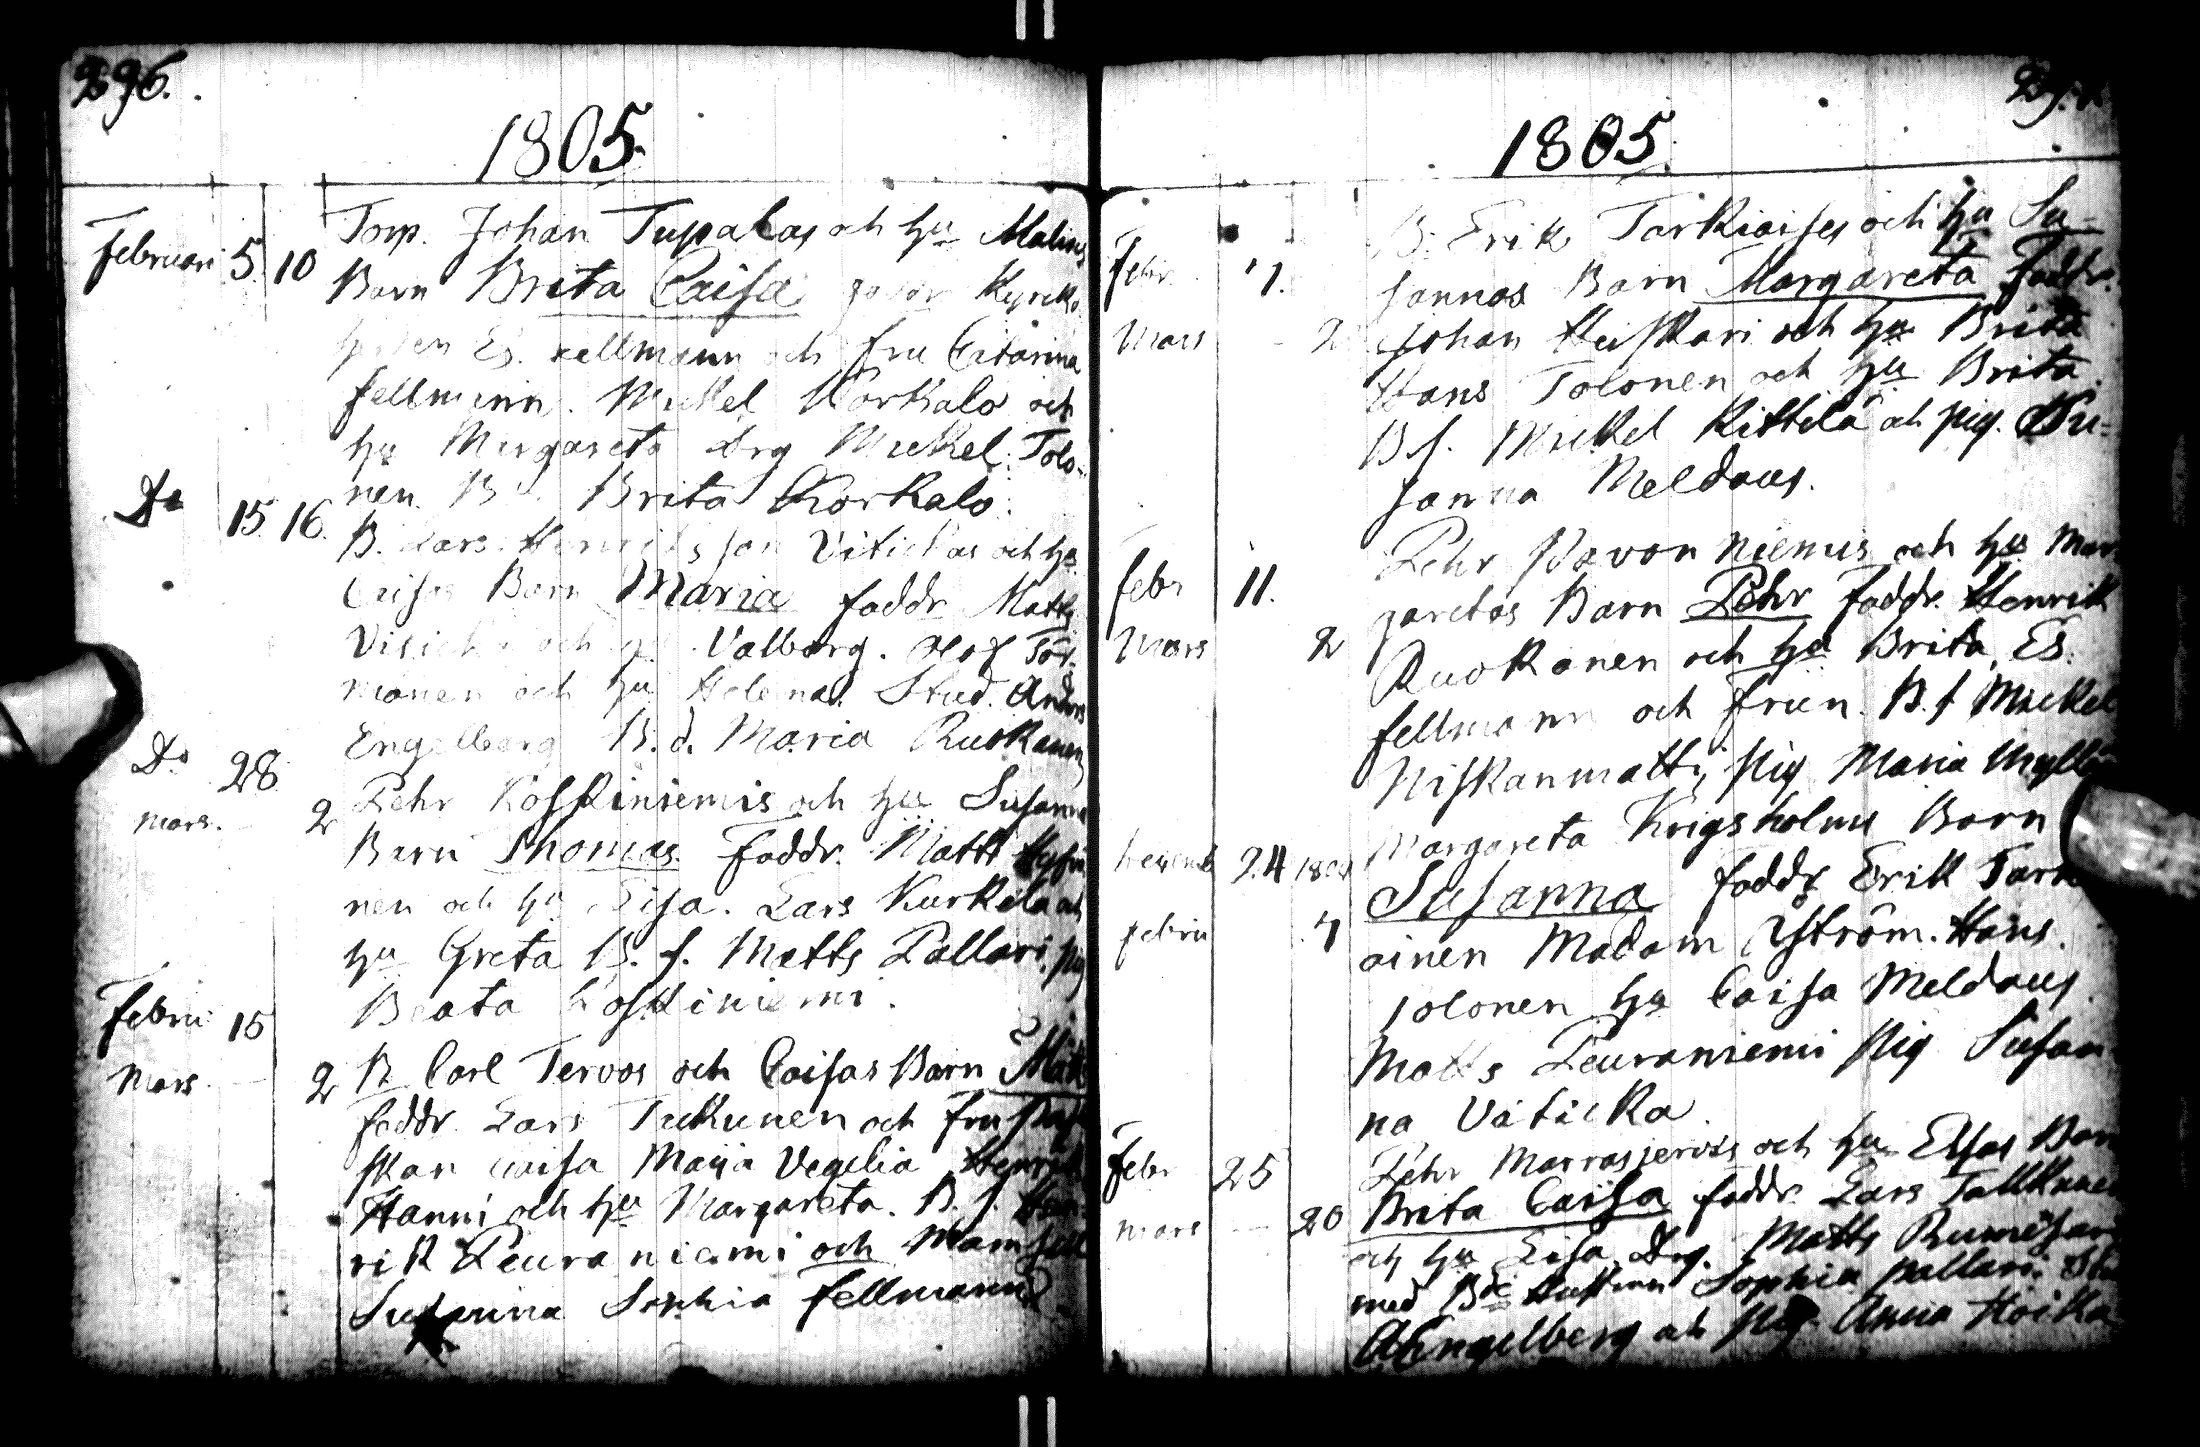 296.
1805.
Februari 5. 10
Torp. Johan Tupalas och hu Malins
Barn Brita Caisa Kyrko
Es. Fellmann och fru Catarina
Fellmann. Mickel Korkalo och
hu Margareta drg Mickel Tolo-
nen. B Brita Korkalo.
Do 15. 16.
B. Lars Henriksson Vitickas och hu
Caisas Barn Maria faddr Matts
Viticka och hu Valborg. Olof Tor-
mänen och hu Helena. Stud. Anders
Engelberg B. d. Maria Ruokanen
Do 28.
mars. 2
Pehr Koskiniemis och hu Susanna
Barn Thomas. Faddr. Matts
nen och hu Lisa. Lars Kurkela och
hu Greta B. s. Matts Pallari. pig
Beata Koskiniemi.
Febru 15
Mars 2
B Carl Tervos och Caisas Barn
faddr. Lars Tukunen och fru
skan Caisa Maria Vegelia Henrik
Hanni och hu Margareta. B. s. Hen-
rik Peuraniemi och Mamsell
Susanna Sophia Fellmann
1805.
Febr 7.
Mars 2
B. Erik Tarkiaises och hu Su-
sannas Barn Margareta faddr.
Johan Heiskari och hu Brita
Hans Tolonen och hu Brita
B s. Mickel Kittilä och pig. Su-
sanna Meldaus.
Febr 11.
Mars 2
Pehr Pavonniemis och hu Mar
garetas Barn Pehr faddr. Henrik
Ruokanen och hu Brita, Es.
Fellmann och fruen. B. s Mickel
Niskanmatti, pig Maria
24
Febru 7
Margareta Krigsholms Barn
Susanna faddr Erik Tark
ainen Madam Åström. Hans
Tolonen hu Caisa Meldaus
Matts Peuraniemi pig Susan
na Viticka
Febr 25
mars 20
Pehr Marrasjervis och hu Elsas Barn
Brita Caisa faddr. Lars
och hu Lisa, Drg. Matts
med Sophia Pallari.
AEngelberg och pig. Anna Hoikka